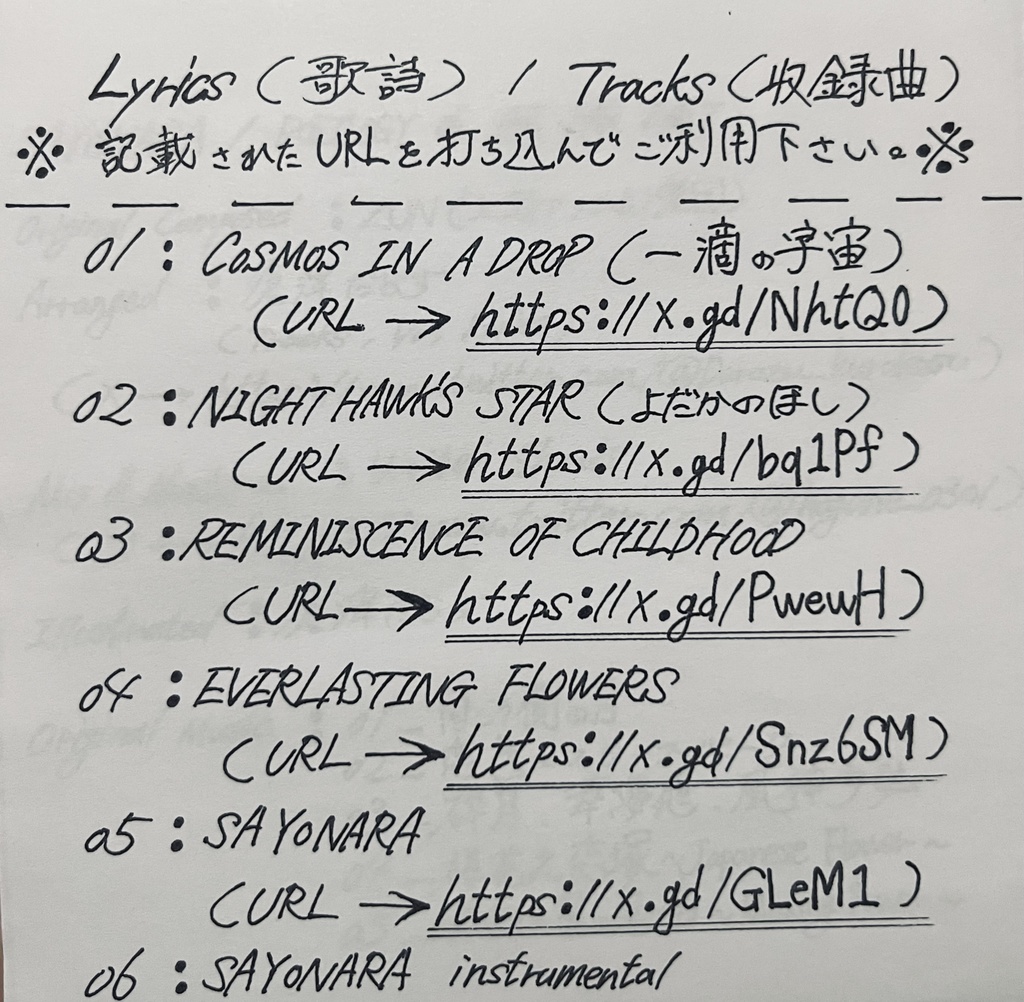 Lyrics (歌詩) / Tracks (収録曲)
※ 記載されたURLを打ち込んでご利用下さい。※
01 : COSMOS IN A DROP (一滴の宇宙)
(URL → https://x.gd/NhtQ0)
02 : NIGHTHAWK'S STAR (よだかのほし)
(URL → https://x.gd/bq1Pf)
03 : REMINISCENCE OF CHILDHOOD
(URL → https://x.gd/PwewH)
04 : EVERLASTING FLOWERS
(URL → https://x.gd/Snz6SM)
05 : SAYONARA
(URL → https://x.gd/GLeM1)
06 : SAYONARA instrumental